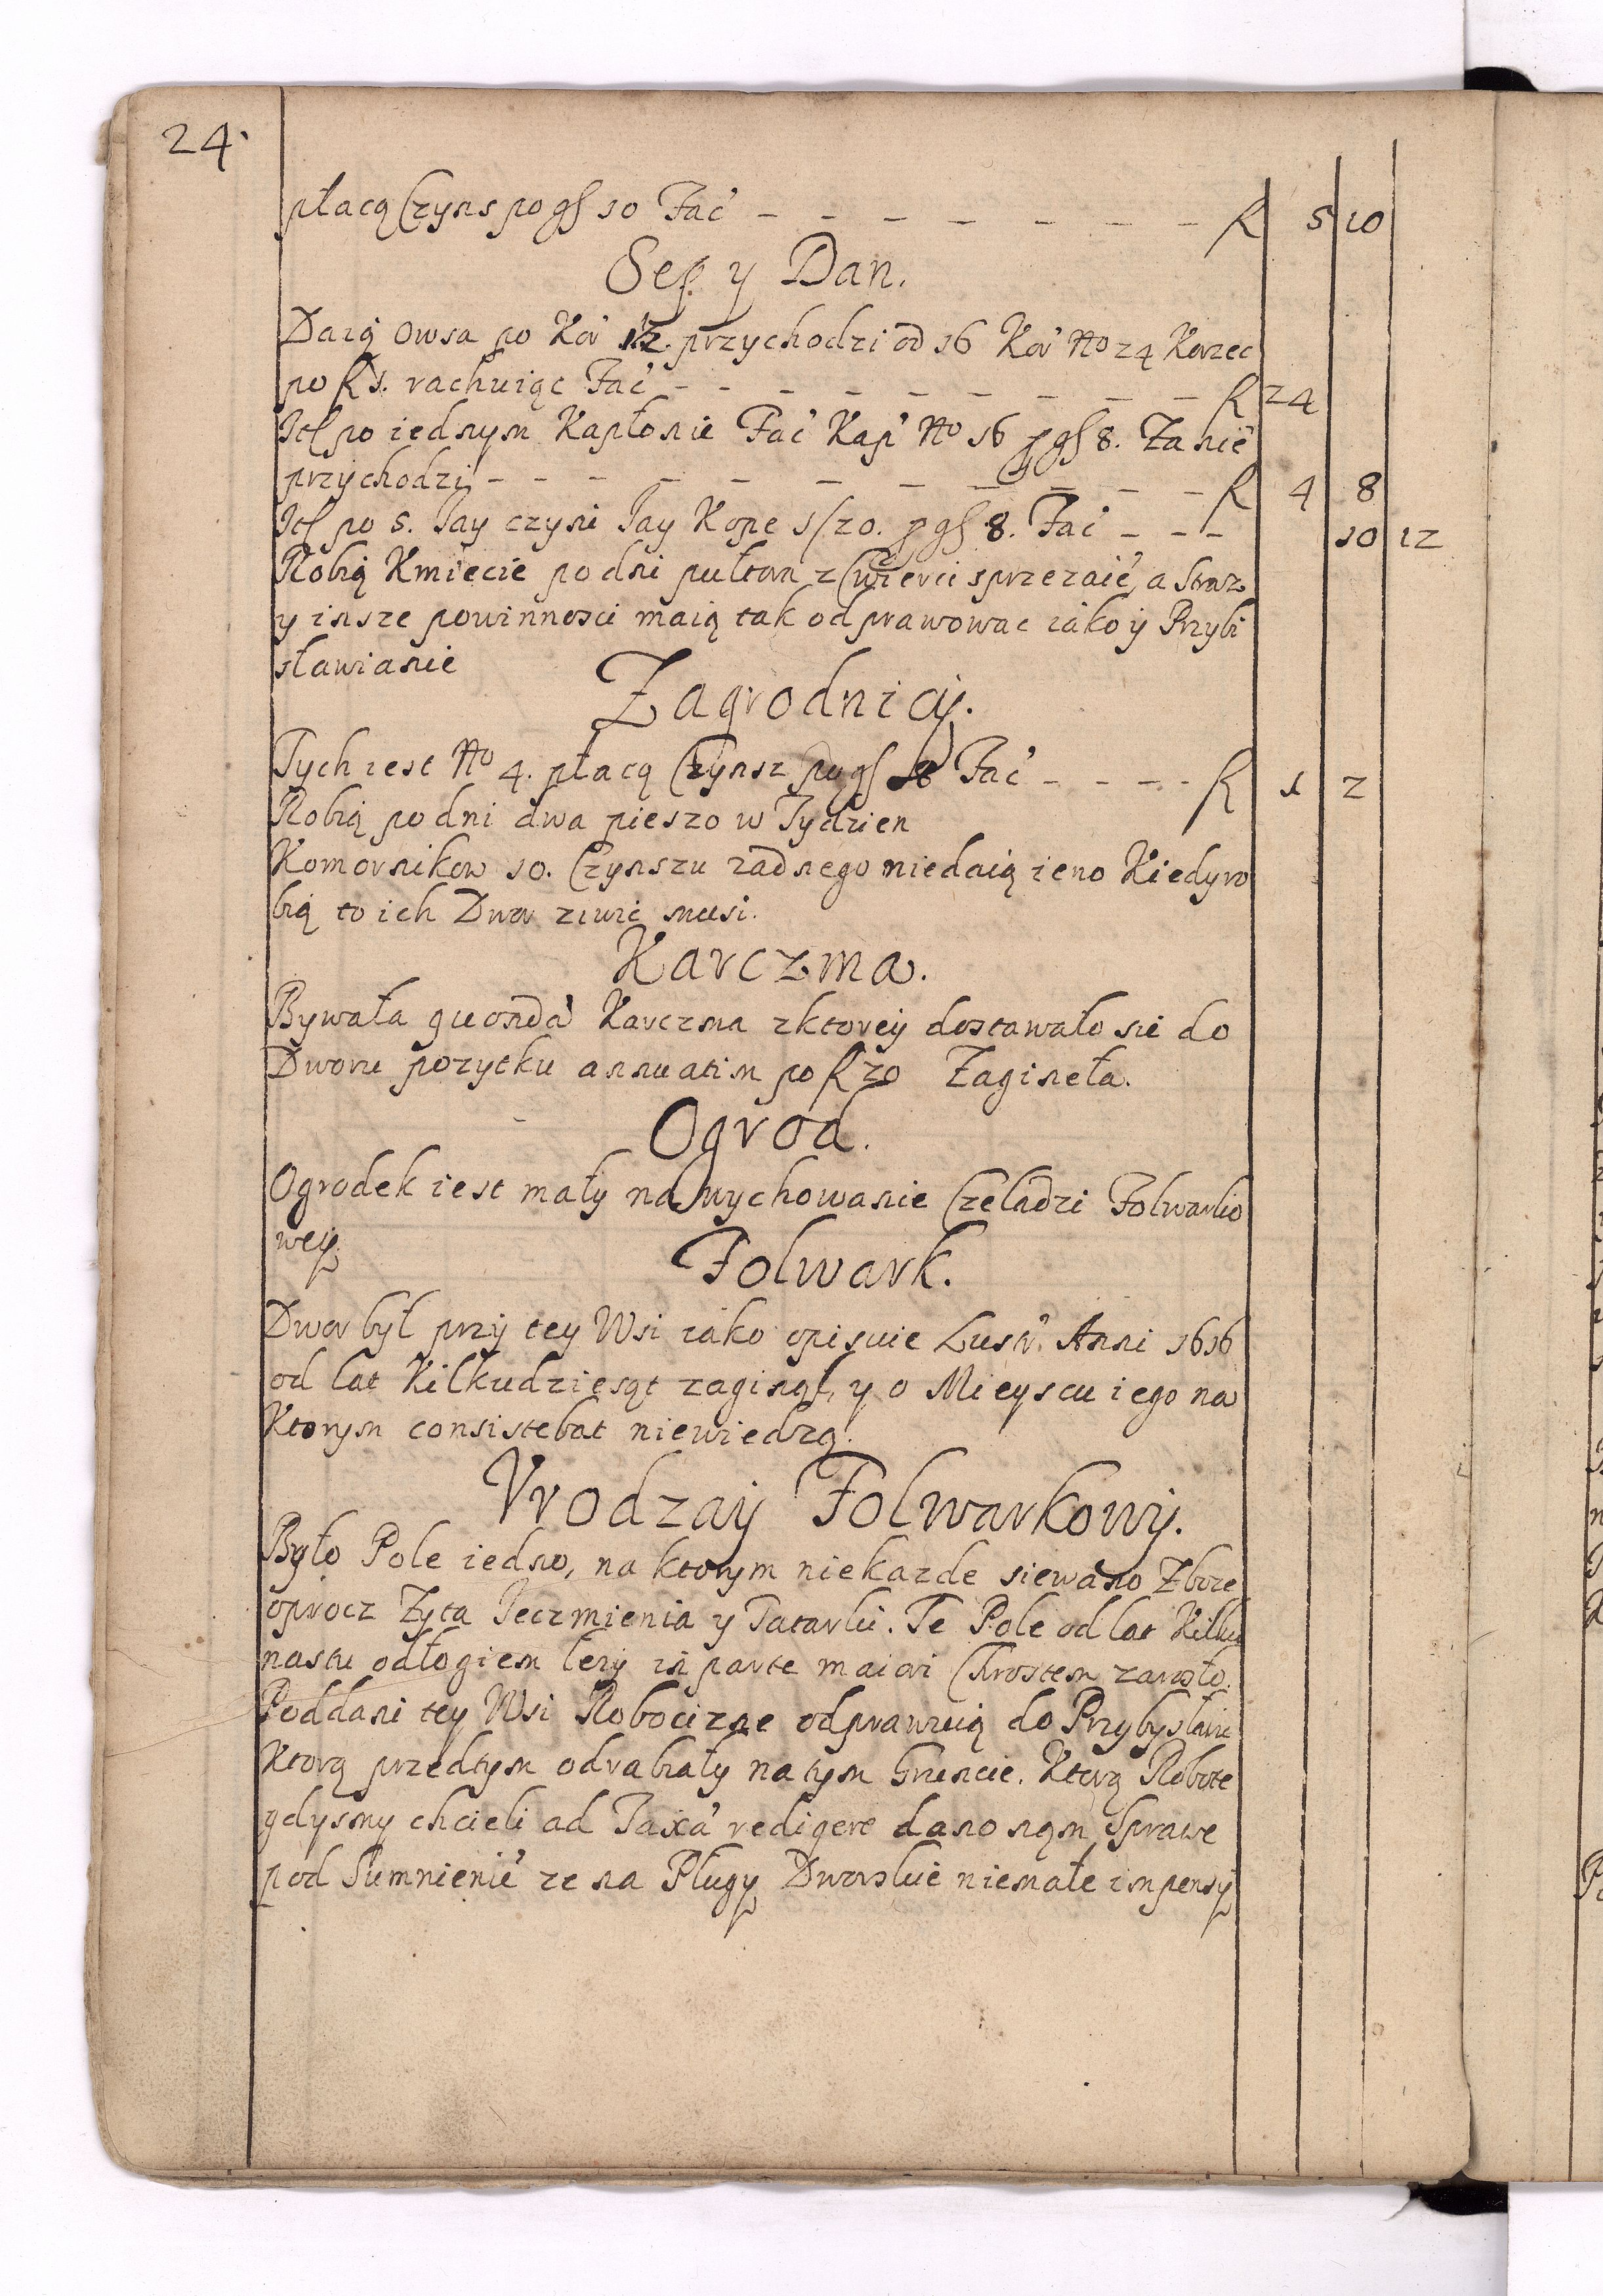 24.
płacą Czyns po gſ 10 Fać — — — — — — — R 5 10
Sep y Dan.
Daią owsa po Kor 1½. przychodzi od 16 Kor Nо 24 Korzec
po R 1. rachuiąc Fać — — — — — — — — R 24
Itſ po iednym Kapłonie Fać Kap Nо 16 p gſ 8. Za nie
przychodzi — — — — — — — — — — R 4 8
Itſ po 5. Jay czyni Jay Kope 1/20. p gſ 8. Fać — — — 10 12
Robią Kmiecie po dni pułtora z Cwierci sprzezaié, a Straz
y insze powinnosci maią tak odprawowac iako ÿ Przybi
sławianie
Zagrodnicÿ.
Tych iest Nо 4. płacą Czynsz po gſ 8 Fać — — — — R 1 2
Robią po dni dwa pieszo w Tydzien
Komornikow 10. Czynszu zadnego niedaią ieno Kiedy ro
bią to ich Dwor ziwic musi.
Karczma.
Bywała quonda Karczma z ktoreÿ dostawało sie do
Dworu pozytku annuatim po R 20 Zagineła.
Ogrod.
Ogrodek iest mały na wychowanie Czeladzi Folwarko
weÿ.
Folwark.
Dwor był przÿ tey Wsi iako opisuie Lusr. Anni 1616
od lat Kilkudziesąt zaginął, y o Mieyscu iego na
Ktorym consistebat niewiedzą.
Vrodzaÿ Folwarkowÿ.
Było Pole iedno, na ktorym niekazde siewano Zboze
oprocz Zyta Jeczmienia y Tatarki. Te Pole od lat Kilku
nastu odłogiem lezÿ in parte maiori Chrostem zarosło.
Poddani tey Wsi Robocizne odprawuią do Przybysławic
Ktorą przedtym odrabiały na tym Gruncie. Ktorą Robote
gdysmy chcieli ad Taxa redigere dano nąm Sprawe
pod Sumnienié ze na Pługÿ Dworskie niemałe impensÿ